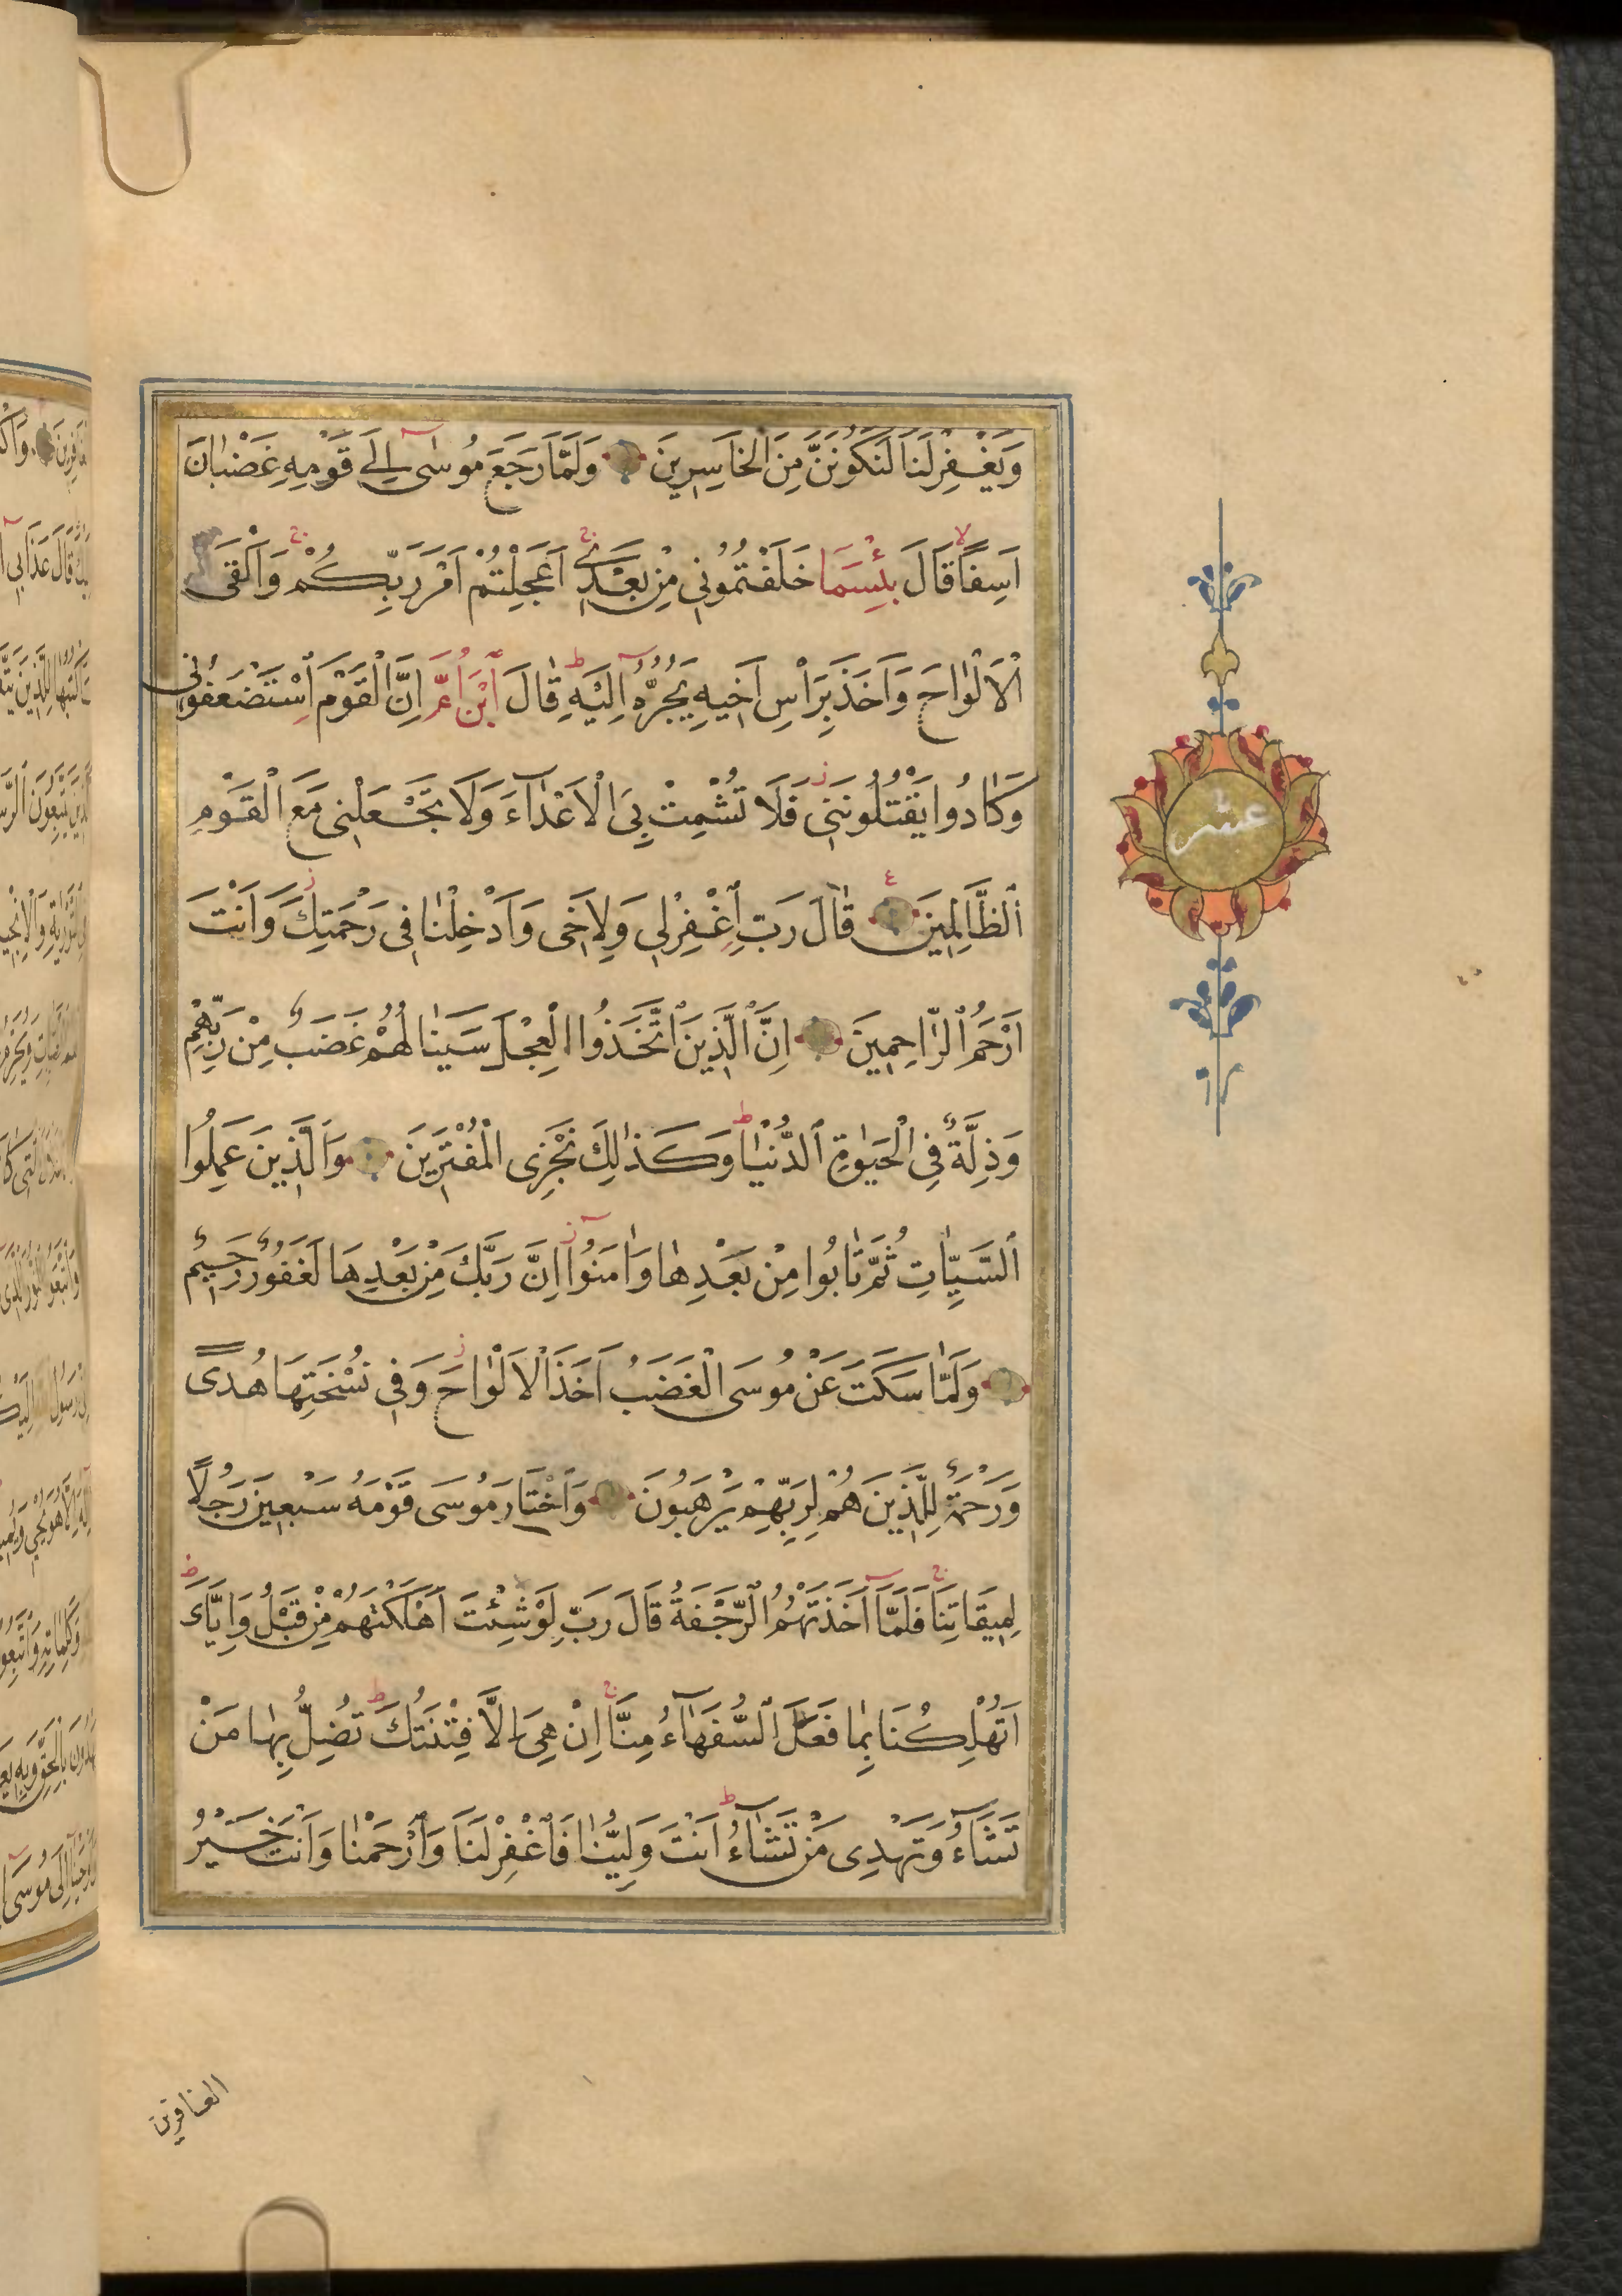 وَيَغْفِرْلَنَا لَنَكُونَنَّ مِنَ الْخَاسِرِينَ وَلَمَّا رَجَعَ مُوسٰى اِلٰى قَوْمِهِ غَضْبَانَ
اَسِفًا قَالَ بِئْسَمَا خَلَفْتُمُونِى مِنْ بَعْدِى اَعَجِلْتُمْ اَمْرَ رَبِّكُمْ وَاَلْقَى
الْاَلْوٰاحَ وَاَخَذَ بِرَاْسِ اَخِيهِ يَجُرُّهُ اِلَيْهِ قٰالَ ابْنَ اُمَّ اِنَّ الْقَوْمَ اسْتَضْعَفُونِى
وَكَادُوا يَقْتُلُونَنِى فَلَا تُشْمِتْ بِىَ الْاَعْدَاۤءَ وَلَا تَجْعَلْنِى مَعَ الْقَوْمِ
الظَّالِمِينَ قٰالَ رَبِّ اغْفِرْلِى وَلِاَخِى وَاَدْخِلْنَا فِى رَحْمَتِكَ وَاَنْتَ
اَرْحَمُ الرَّاحِمِينَ اِنَّ الَّذِينَ اتَّخَذُوا الْعِجْلَ سَيَنَالُهُمْ غَضَبٌ مِنْ رَبِّهِمْ
وَذِلَّةٌ فِى الْحَيٰوةِ الدُّنْيٰا وَكَذٰلِكَ نَجْزِى الْمُفْتَرِينَ وَالَّذِينَ عَمِلُوا
السَّيِّئٰاتِ ثُمَّ تٰابُوا مِنْ بَعْدِهٰا وَاٰمَنُوا اِنَّ رَبَّكَ مِنْ بَعْدِهَا لَغَفُورٌ رَحِيمٌ
وَلَمّٰا سَكَتَ عَنْ مُوسَى الْغَضَبُ اَخَذَ الْاَلْوٰاحَ وَفِى نُسْخَتِهَا هُدًى
وَرَحْمَةٌ لِلَّذِينَ هُمْ لِرَبِّهِمْ يَرْهَبُونَ وَاخْتَارَ مُوسَى قَوْمَهُ سَبْعِينَ رَجُلًا
لِمِيقَاتِنَا فَلَمَّاۤ اَخَذَتْهُمُ الرَّجْفَةُ قَالَ رَبِّ لَوْشِئْتَ اَهْلَكْتَهُمْ مِنْ قَبْلُ وَاِيَّاىَ
اَتُهْلِكُنَا بِمٰا فَعَلَ السُّفَهٰاۤءُ مِنَّا اِنْ هِىَ اِلَّا فِتْنَتُكَ تُضِلُّ بِهٰا مَنْ
تَشَاۤءُ وَتَهْدِى مَنْ تَشَاۤءُ اَنْتَ وَلِيُّنٰا فَاغْفِرْلَنَا وَارْحَمْنٰا وَاَنْتَ خَيْرُ
عشر
الغافرين